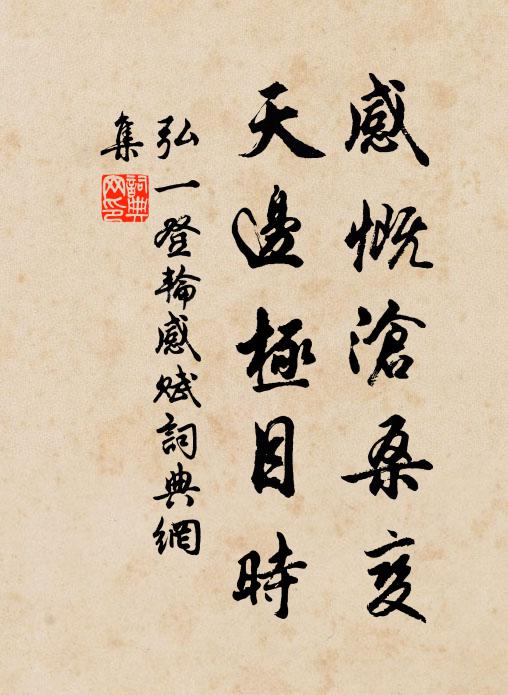 感慨滄桑变
天邊極目時
弘一登輪感賦詞典網
集
詞典网印